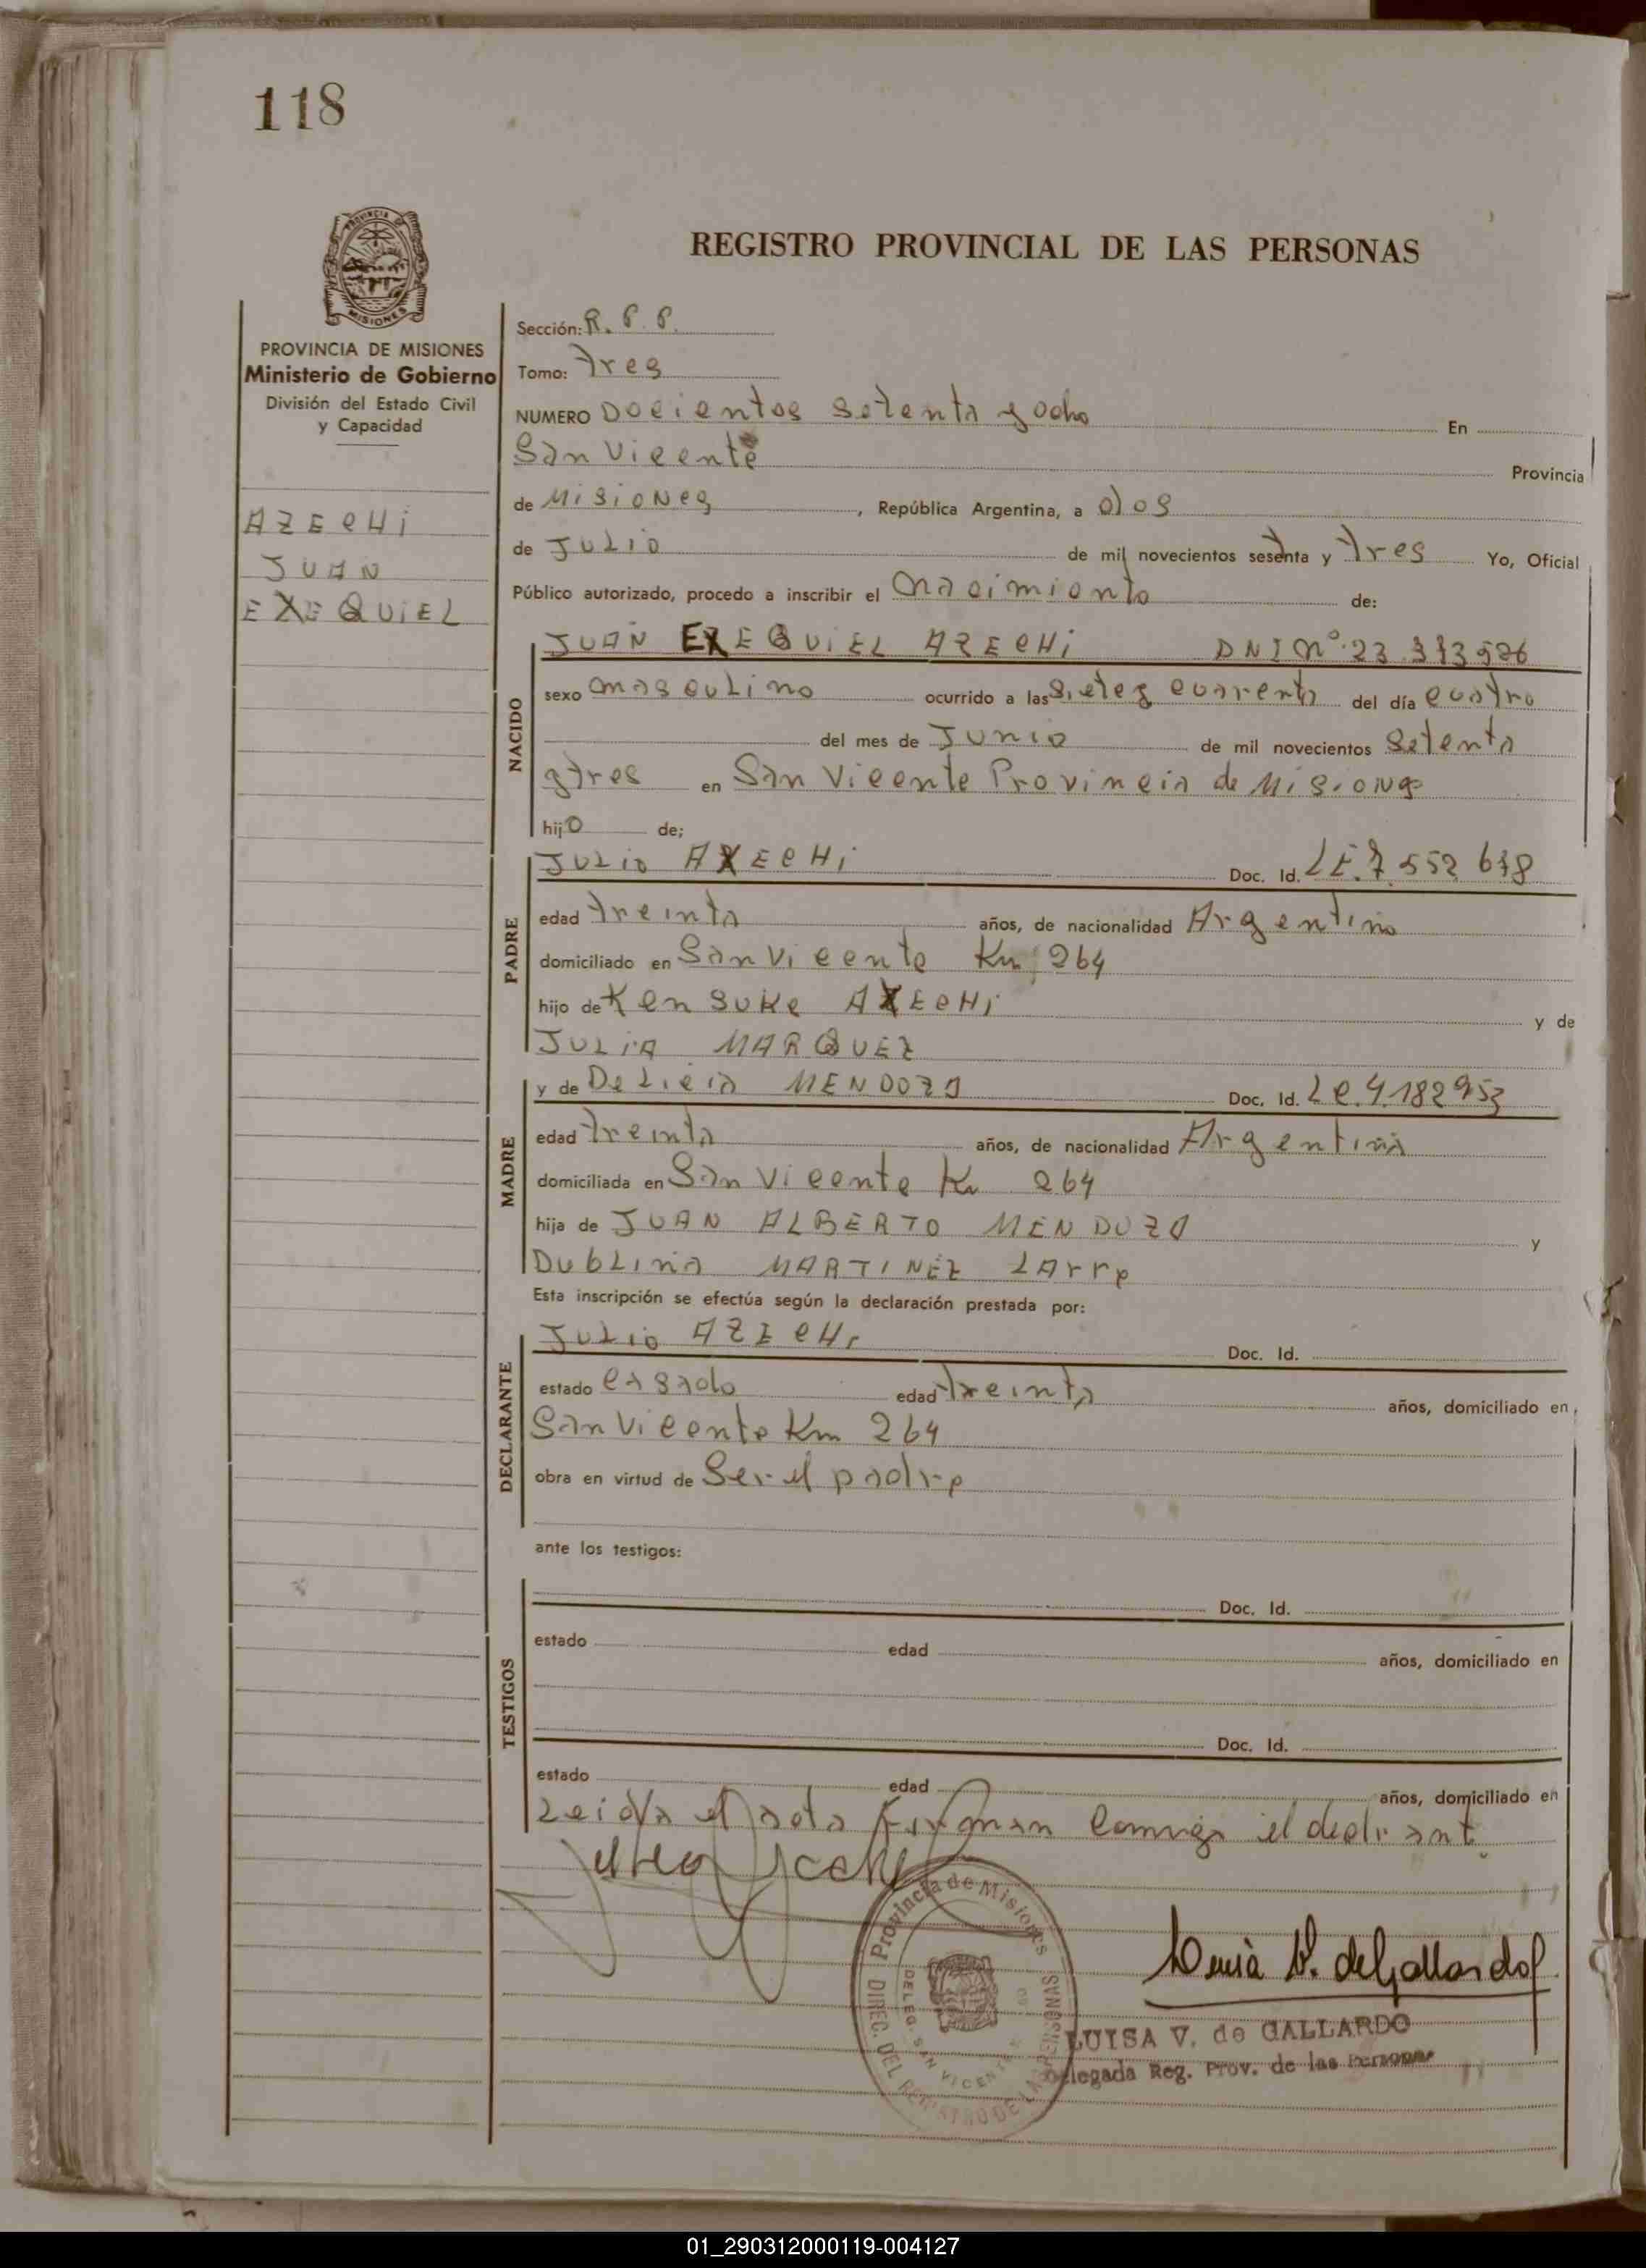 118
REGISTRO PROVINCIAL DE LAS PERSONAS
MISIONES
PROVINCIA DE MISIONES
Ministerio de Gobierno
División del Estado Civil
y Capacidad
AZECHI
JUAN
EXEQUIEL
Sección: R. P. P.
Tomo: tres
NUMERO Docientos setenta y ocho En
San Vicente Provincia
de Misiones, República Argentina, a dos
de Julio de mil novecientos setenta y tres Yo, Oficial
Público autorizado, procedo a inscribir el nacimiento de:
NACIDO
JUAN EXEQUIEL AZECHI DNI Nº 23.313526
sexo masculino ocurrido a las siete y cuarenta del día cuatro
del mes de Junio de mil novecientos setenta
y tres en San Vicente Provincia de Misiones
hijo de;
PADRE
Julio AZECHi Doc. Id. LE.7.552.678
edad treinta años, de nacionalidad Argentino
domiciliado en San Vicente Km 264
hijo de Kensuke AZECHi y de
JULIA MARQUEZ
MADRE
y de Delicia MENDOZA Doc. Id. LC.4.182953
edad treinta años, de nacionalidad Argentina
domiciliada en San Vicente Km 264
hija de JUAN ALBERTO MENDOZA y
Dublina MARTINEZ LArre
Esta inscripción se efectúa según la declaración prestada por:
DECLARANTE
Julio AZECHi Doc. Id.
estado casado edad treinta años, domiciliado en
San Vicente Km 264
obra en virtud de Ser el padre
ante los testigos:
TESTIGOS
Doc. Id.
estado edad años, domiciliado en
Doc. Id.
estado edad años, domiciliado en
Leida el acta firman conmigo el declarant
Provincia de Misiones
DIREC. DEL REGISTRO DE LAS PERSONAS
DELEG. SAN VICENTE
Luisa V. de Gallardo
LUISA V. de GALLARDO
Delegada Reg. Prov. de las Personas
01_290312000119-004127